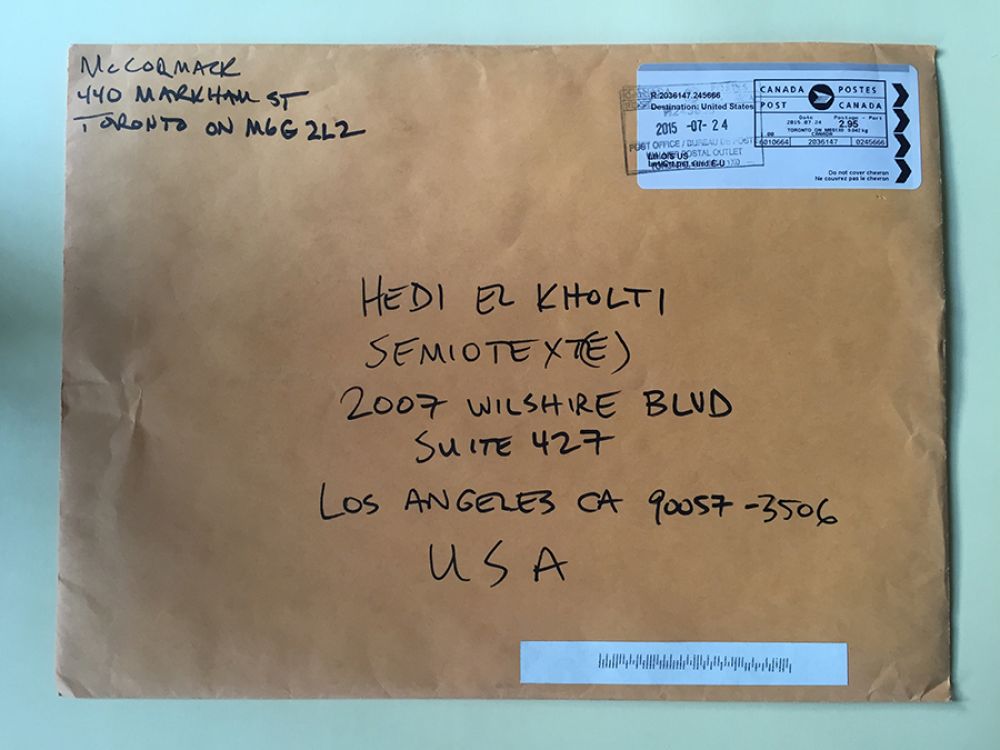 McCORMACK
440 MARKHAM ST
TORONTO ON M6G 2L2
R:2036147.245666
Destination: United States
2015 -07- 24
POST OFFICE / BUREAU DE POSTE
POSTAL OUTLET
CANADA POSTES
POST CANADA
Date Postage - Port
2015.07.24 2.95
TORONTO ON
CANADA
6010664 2036147 0245666
Do not cover chevron
Ne couvrez pas le chevron
HEDI EL KHOLTI
SEMIOTEXT(E)
2007 WILSHIRE BLVD
SUITE 427
LOS ANGELES CA 90057-3506
USA